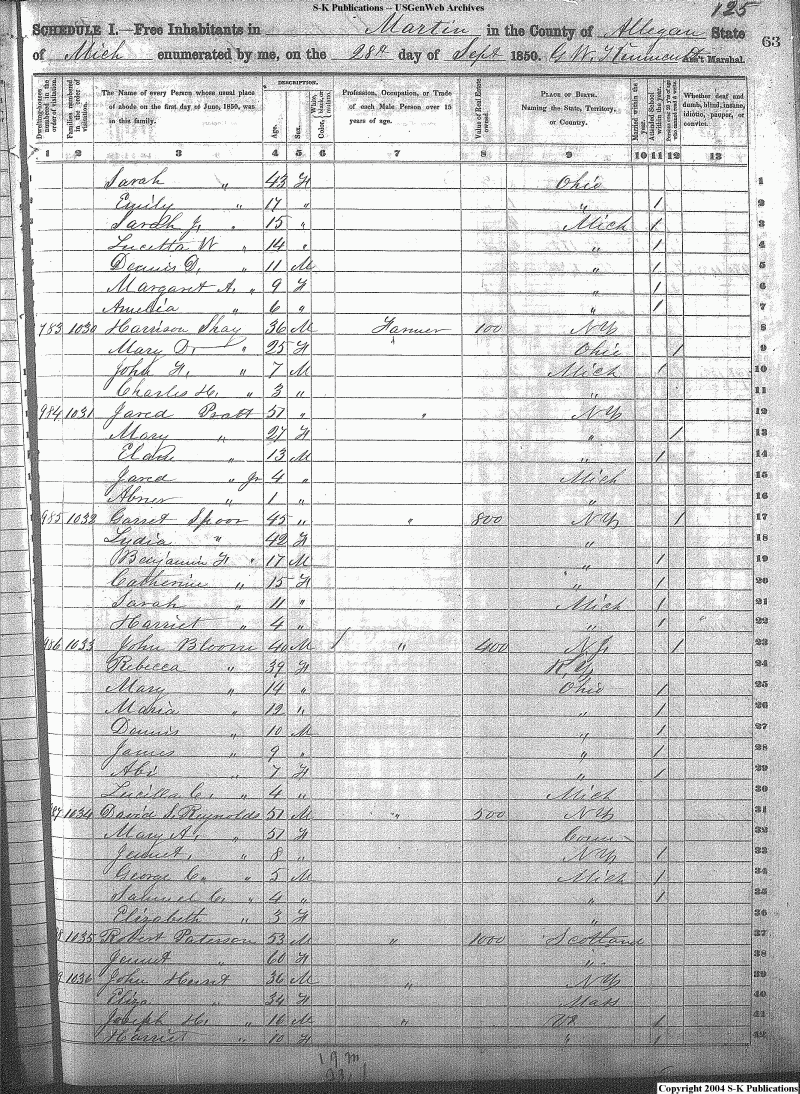 S-K Publications – USGenWeb Archives
125
SCHEDULE I.—Free Inhabitants in Martin in the County of Allegan State
63
of Mich enumerated by me, on the 28th day of Sept 1850. G. W. Ass't Marshal.
Dwelling-houses numbered in the order of visitation.
Families numbered in the order of visitation.
The Name of every Person whose usual place of abode on the first day of June, 1850, was in this family.
DESCRIPTION.
Age.
Sex.
Color, White, black, or mulatto.
Profession, Occupation, or Trade of each Male Person over 15 years of age.
Value of Real Estate owned.
PLACE OF BIRTH. Naming the State, Territory, or Country.
Married within the year.
Attended School within the year.
Persons over 20 y'rs of age who cannot read & write.
Whether deaf and dumb, blind, insane, idiotic, pauper, or convict.
1 2 3 4 5 6 7 8 9 10 11 12 13
Sarah " 43 F Ohio 1
Emily " 17 " " 1 2
Sarah J. " 15 " Mich 1 3
Lucetta W " 14 " " 1 4
Dennis D. " 11 M " 1 5
Margaret A. " 9 F " 1 6
Amelia " 6 " " 1 7
983 1030 Harrison Shay 36 M Farmer 100 NY 8
Mary D. " 25 F Ohio 1 9
John F. " 7 M Mich 1 10
Charles H. " 3 " " 11
984 1031 Jared Pratt 51 " " NY 12
Mary " 27 F " 1 13
" 13 M " 1 14
Jared " Jr 4 " Mich 15
Abner " 1 " " 16
985 1032 Garret Spoor 45 " " 800 NY 1 17
Lydia " 42 F " 18
Benjamin F " 17 M " 1 19
Catherine " 15 F " 1 20
Sarah " 11 " Mich 1 21
Harriet " 4 " " 1 22
986 1033 John Bloom 40 M / " 400 N.J. 1 23
Rebecca " 39 F N.Y. 24
Mary " 14 " Ohio 1 25
Maria " 12 " " 1 26
Dennis " 10 M " 1 27
James " 9 " " 1 28
Abi " 7 F " 1 29
Lucilla C. " 4 " Mich 30
87 1034 David S. Reynolds 51 M " 500 NY 31
Mary A. " 51 F Conn 32
Jennet, " 8 " NY 1 33
George C. " 5 M Mich 1 34
Samuel C. " 4 " " 1 35
Elizabeth " 3 F " 36
8 1035 Robert Paterson 53 M " 1000 Scotland 37
Jennet " 60 F " 38
9 1036 John Hurst 36 M " NY 39
Eliza " 34 F Mass 40
Joseph H. " 16 M " Vt 1 41
Harriet " 10 F " 1 42
19 m
Copyright 2004 S-K Publications